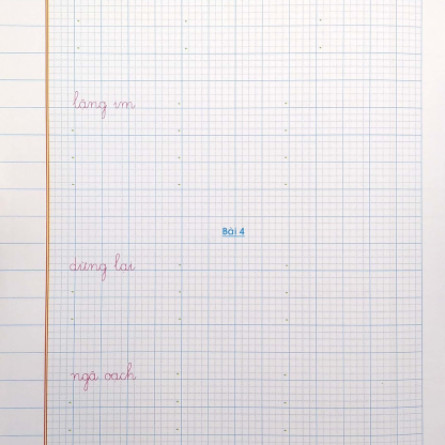 lặng im
Bài 4
dừng lại
ngã oạch